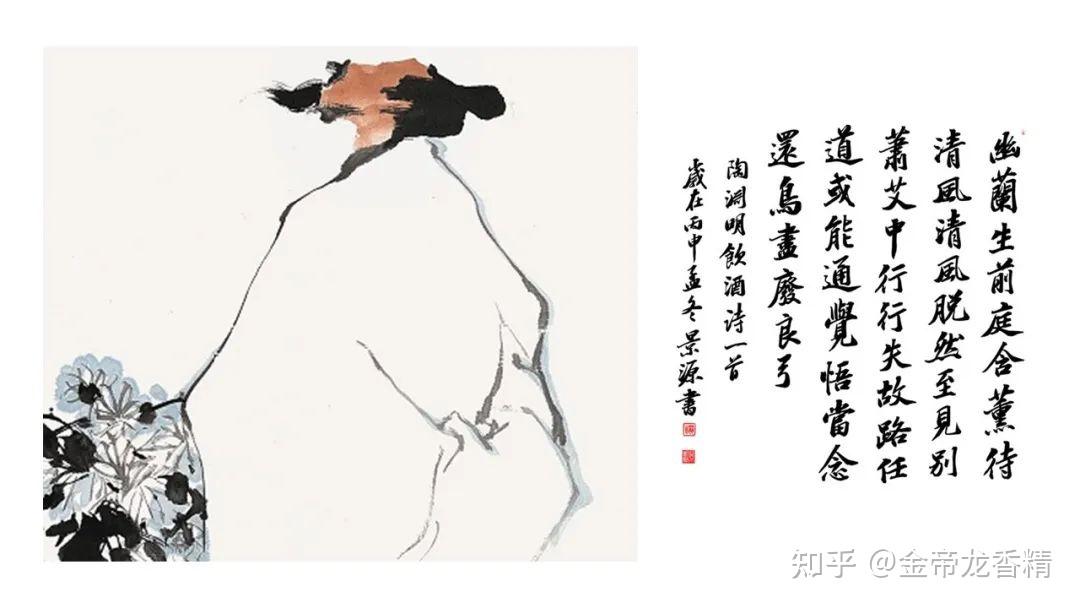 幽蘭生前庭含薰待
清風清風脱然至見别
蕭艾中行行失故路任
道或能通覺悟當念
還鳥盡廢良弓
陶淵明飲酒诗一首
歲在丙申孟冬景源書
知乎 @金帝龙香精